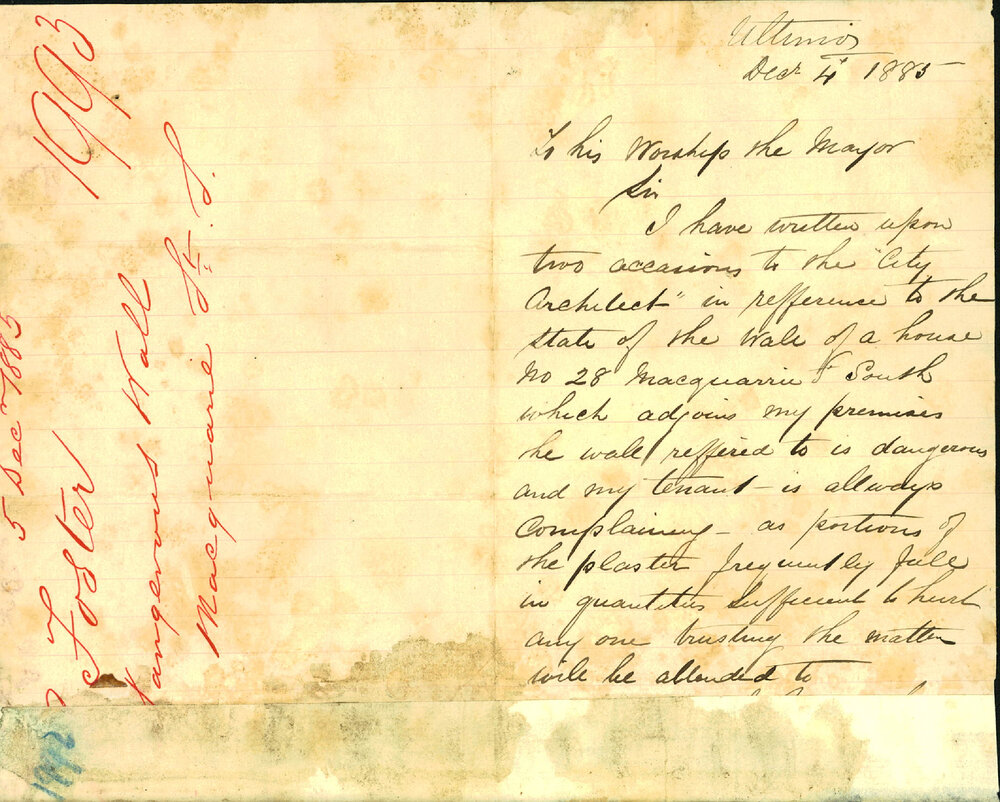 1993
5 Decr 1885
Foster
Dangerous Wall
Macquarie St. S.
Ultimo
Decr 4 1885
To his Worship the Mayor
Sir
I have written upon
two occasions to the "City
Architect" in refference to the
state of the wall of a house
No 28 Macquarrie St South
which adjoins my premises
the wall reffered to is dangerous
and my tenant - is allways
Complaining - as portions of
the plaster frequently fall
in quantities sufficient to hurt
any one trusting the matter
will be attended to